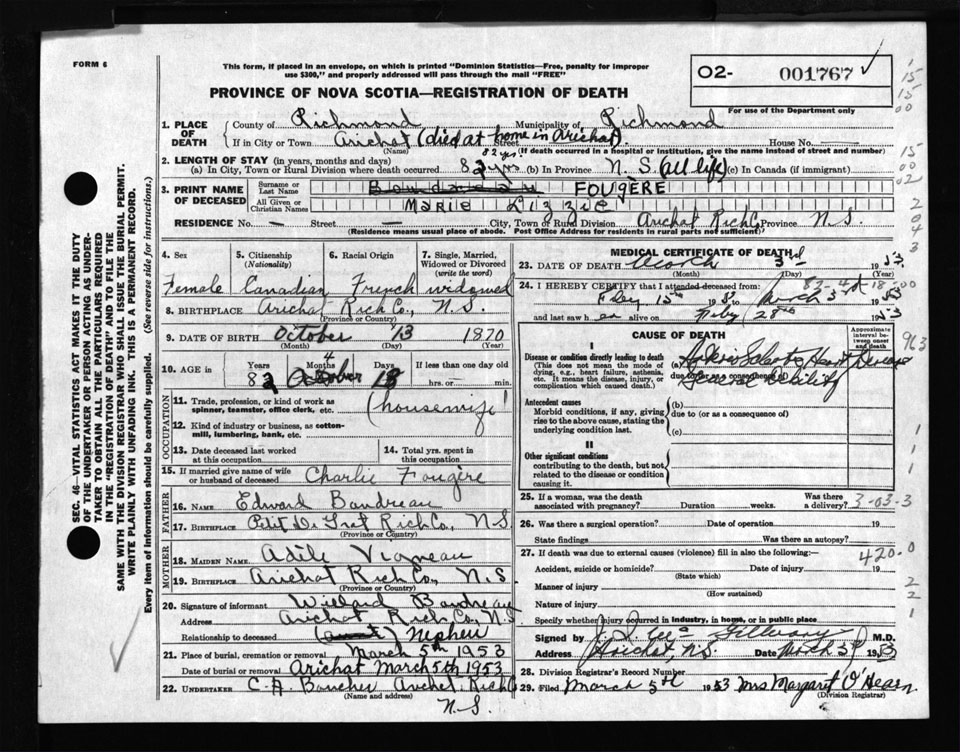 FORM 6
This form, if placed in an envelope, on which is printed "Dominion Statistics—Free, penalty for improper
use $300," and properly addressed will pass through the mail "FREE"
O2- 001767 ✓
For use of the Department only
PROVINCE OF NOVA SCOTIA—REGISTRATION OF DEATH
SEC. 46—VITAL STATISTICS ACT MAKES IT THE DUTY
OF THE UNDERTAKER OR PERSON ACTING AS UNDER-
TAKER TO OBTAIN ALL THE PARTICULARS REQUIRED
IN THE "REGISTRATION OF DEATH" AND TO FILE THE
SAME WITH THE DIVISION REGISTRAR WHO SHALL ISSUE THE BURIAL PERMIT.
WRITE PLAINLY WITH UNFADING INK. THIS IS A PERMANENT RECORD.
Every item of information should be carefully supplied. (See reverse side for instructions.)
1. PLACE OF DEATH
County of Richmond Municipality of Richmond
If in City or Town Arichat (died at home in Arichat) Street House No.
(Name) (If death occurred in a hospital or institution, give the name instead of street and number)
2. LENGTH OF STAY (in years, months and days) 82 yrs.
(a) In City, Town or Rural Division where death occurred 82 yrs (b) In Province N. S. (all life) (c) In Canada (if immigrant)
3. PRINT NAME OF DECEASED
Surname or Last Name Boudreau FOUGÈRE
All Given or Christian Names Marie Lizzie
RESIDENCE No. — Street — City, Town or Rural Division Arichat Rich Co. Province N. S.
(Residence means usual place of abode. Post Office Address for residents in rural parts not sufficient)
4. Sex 5. Citizenship (Nationality) 6. Racial Origin 7. Single, Married, Widowed or Divorced (write the word)
Female Canadian French widowed
8. BIRTHPLACE Arichat Rich Co., N. S.
(Province or Country)
9. DATE OF BIRTH October 13 1870
(Month) (Day) (Year)
10. AGE in Years Months Days If less than one day old
82 4 18 hrs. or min.
OCCUPATION
11. Trade, profession, or kind of work as
spinner, teamster, office clerk, etc. (housewife)
12. Kind of industry or business, as cotton-
mill, lumbering, bank, etc.
13. Date deceased last worked at this occupation 14. Total yrs. spent in this occupation
15. If married give name of wife or husband of deceased Charlie Fougère
FATHER
16. NAME Edward Boudreau
17. BIRTHPLACE Petit De Grat Rich Co., N S
(Province or Country)
MOTHER
18. MAIDEN NAME Adile Vigneau
19. BIRTHPLACE Arichat Rich Co., N. S.
(Province or Country)
20. Signature of informant Willard Boudreau
Address Arichat Rich Co., N. S
Relationship to deceased (aunt) Nephew
21. Place of burial, cremation or removal March 5th 1953
Date of burial or removal Arichat March 5th 1953
22. UNDERTAKER C. A. Boucher Arichat Rich Co
(Name and address)
N. S.
MEDICAL CERTIFICATE OF DEATH
23. DATE OF DEATH March 3rd 1953
(Month) (Day) (Year)
24. I HEREBY CERTIFY that I attended deceased from:
Feby 15th 1953 to March 3 1953
82-4-18-00
and last saw h er alive on Feby 28th 1953
CAUSE OF DEATH
Approximate interval between onset and death
I
Disease or condition directly leading to death
(This does not mean the mode of dying, e.g., heart failure, asthenia, etc. It means the disease, injury, or complication which caused death.)
(a) Arterio Sclerotic Heart Disease
due to (or as a consequence of)
General Debility
Antecedent causes
Morbid conditions, if any, giving rise to the above cause, stating the underlying condition last.
(b)
due to (or as a consequence of)
(c)
II
Other significant conditions
contributing to the death, but not related to the disease or condition causing it.
25. If a woman, was the death associated with pregnancy? Duration weeks. Was there a delivery?
3-03-3
26. Was there a surgical operation? Date of operation 19
State findings Was there an autopsy?
27. If death was due to external causes (violence) fill in also the following:—
420.0
Accident, suicide or homicide? Date of injury 19
(State which)
Manner of injury
(How sustained)
Nature of injury
Specify whether injury occurred in industry, in home, or in public place
Signed by J. L. McGillivary M.D.
Address Arichat, N.S. Date March 3 1953
28. Division Registrar's Record Number
29. Filed March 5th 1953 Mrs Margaret O'Hearn.
(Division Registrar)
1
15
15
00
15
00
02
2
0
4
3
963
1
1
1
2
2
1